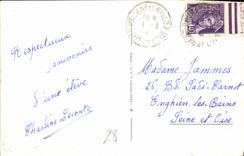 Respectueux
souvenirs
d'une élève
Charline Leconte
28
Madame Jammes
26, Bd Sadi-Carnot
Enghien les Bains
Seine et Oise